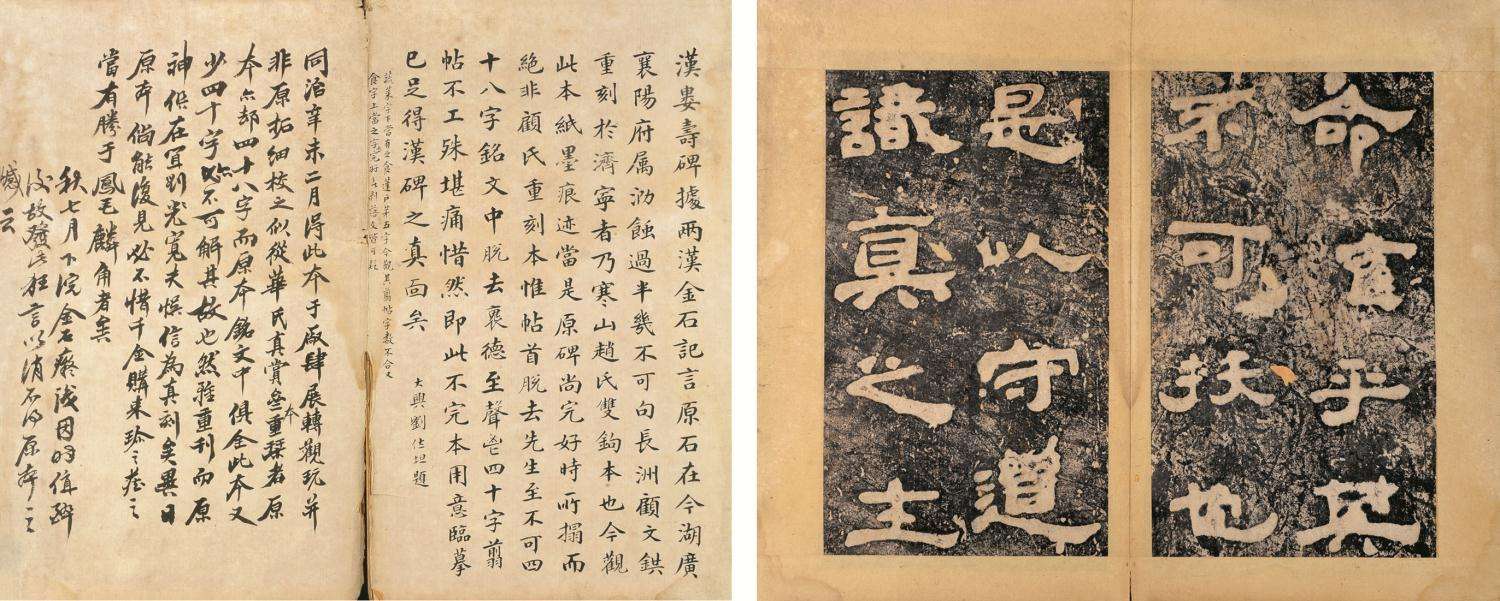 命隺乎其
不可拔也
是以守道
識真之主
漢婁壽碑據兩漢金石記言原石在今湖廣
襄陽府属泐蝕過半幾不可句長洲顧文鉷
重刻於濟寧者乃寒山趙氏雙鉤本也今觀
此本紙墨痕迹當是原碑尚完好時所搨而
絶非顧氏重刻本惟帖首脱去先生至不可四
十八字銘文中脱去襄德至聲
四十字翦
帖不工殊堪痛惜然即此不完本用意臨摹
已足得漢碑之真面矣
大興劉位坦題
同治辛未二月得此本于厰肆展轉觀玩并
非原拓細校之似從華氏真賞叁重琹者原
本
本亦却四十八字而原本銘文中俱全此本又
少四十字殆不可解其故也然雖重刊而原
神俱在宜劉光寬夫悮信為真刻矣異日
原本倘能復見必不惜千金購来珍之蓋之
當有勝于鳳毛麟角者矣
秋七月下浣金石癡淺因時值醉
後故發此狂言以消不得原本之
憾云